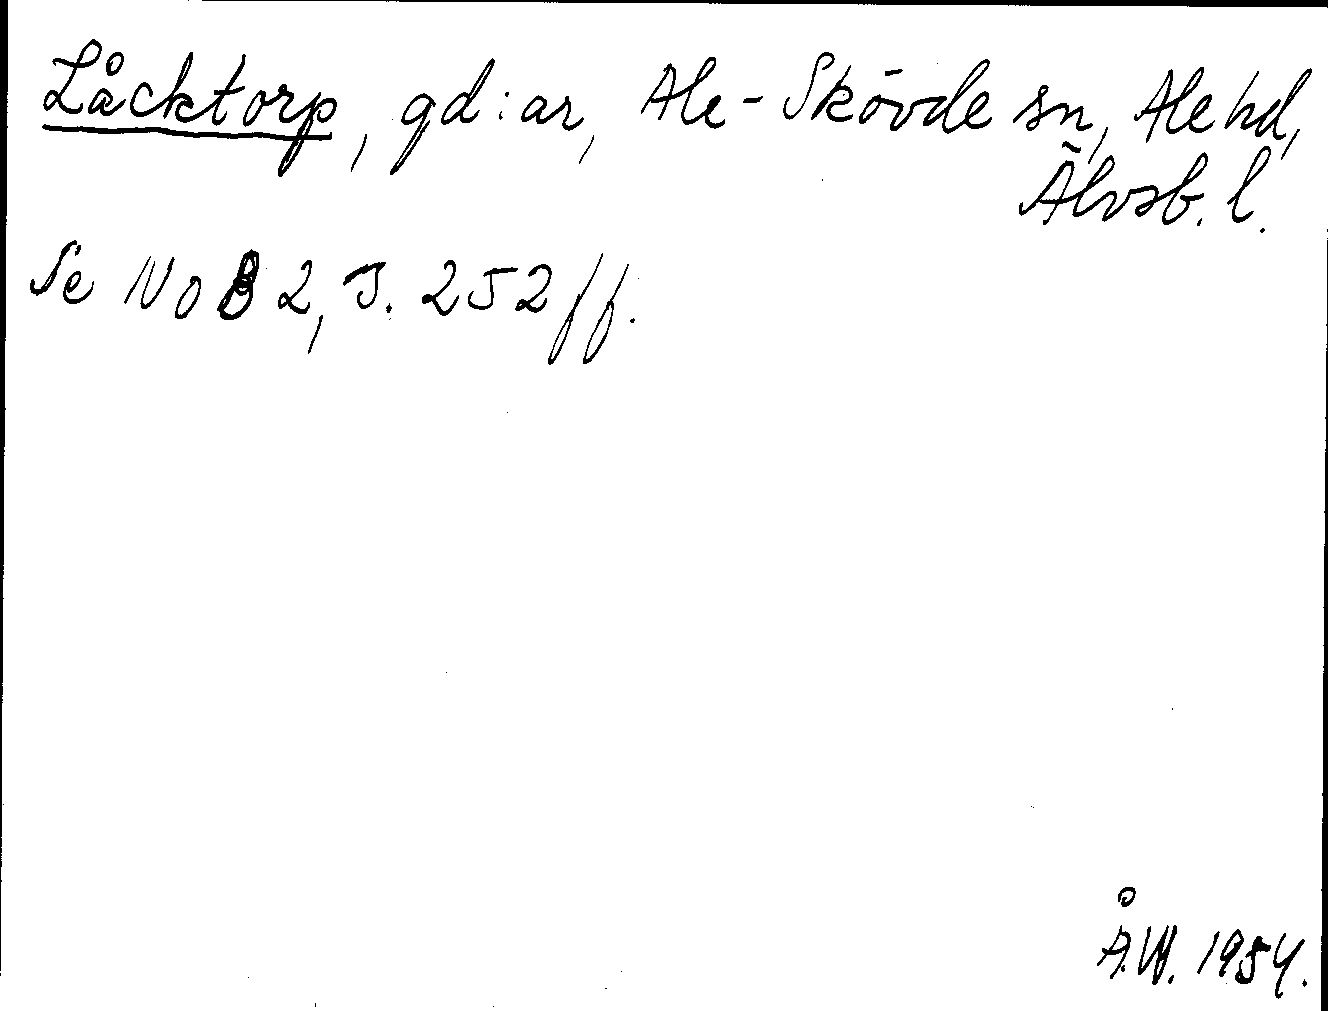 Låcktorp, gd:ar, Ale-Skövde sn, Ale hd,
Älvsb. l.
Se NoB 2, s. 252 ff.
Å.W. 1954.